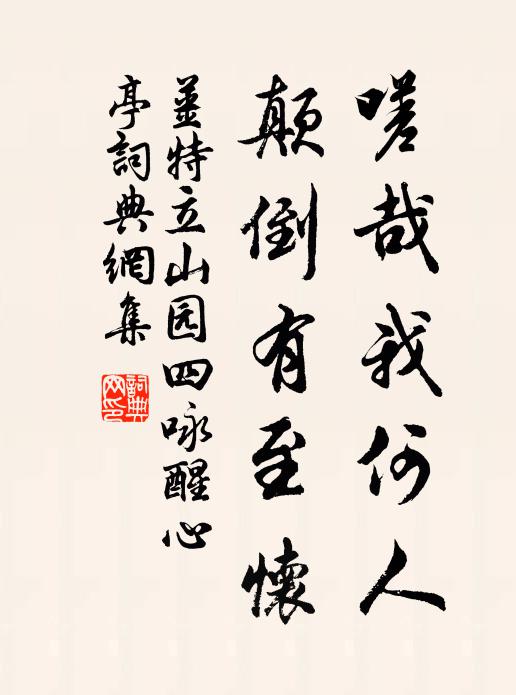 嗟哉我何人
颠倒有至懷
姜特立山园四咏醒心
亭詞典網集
詞典
网印